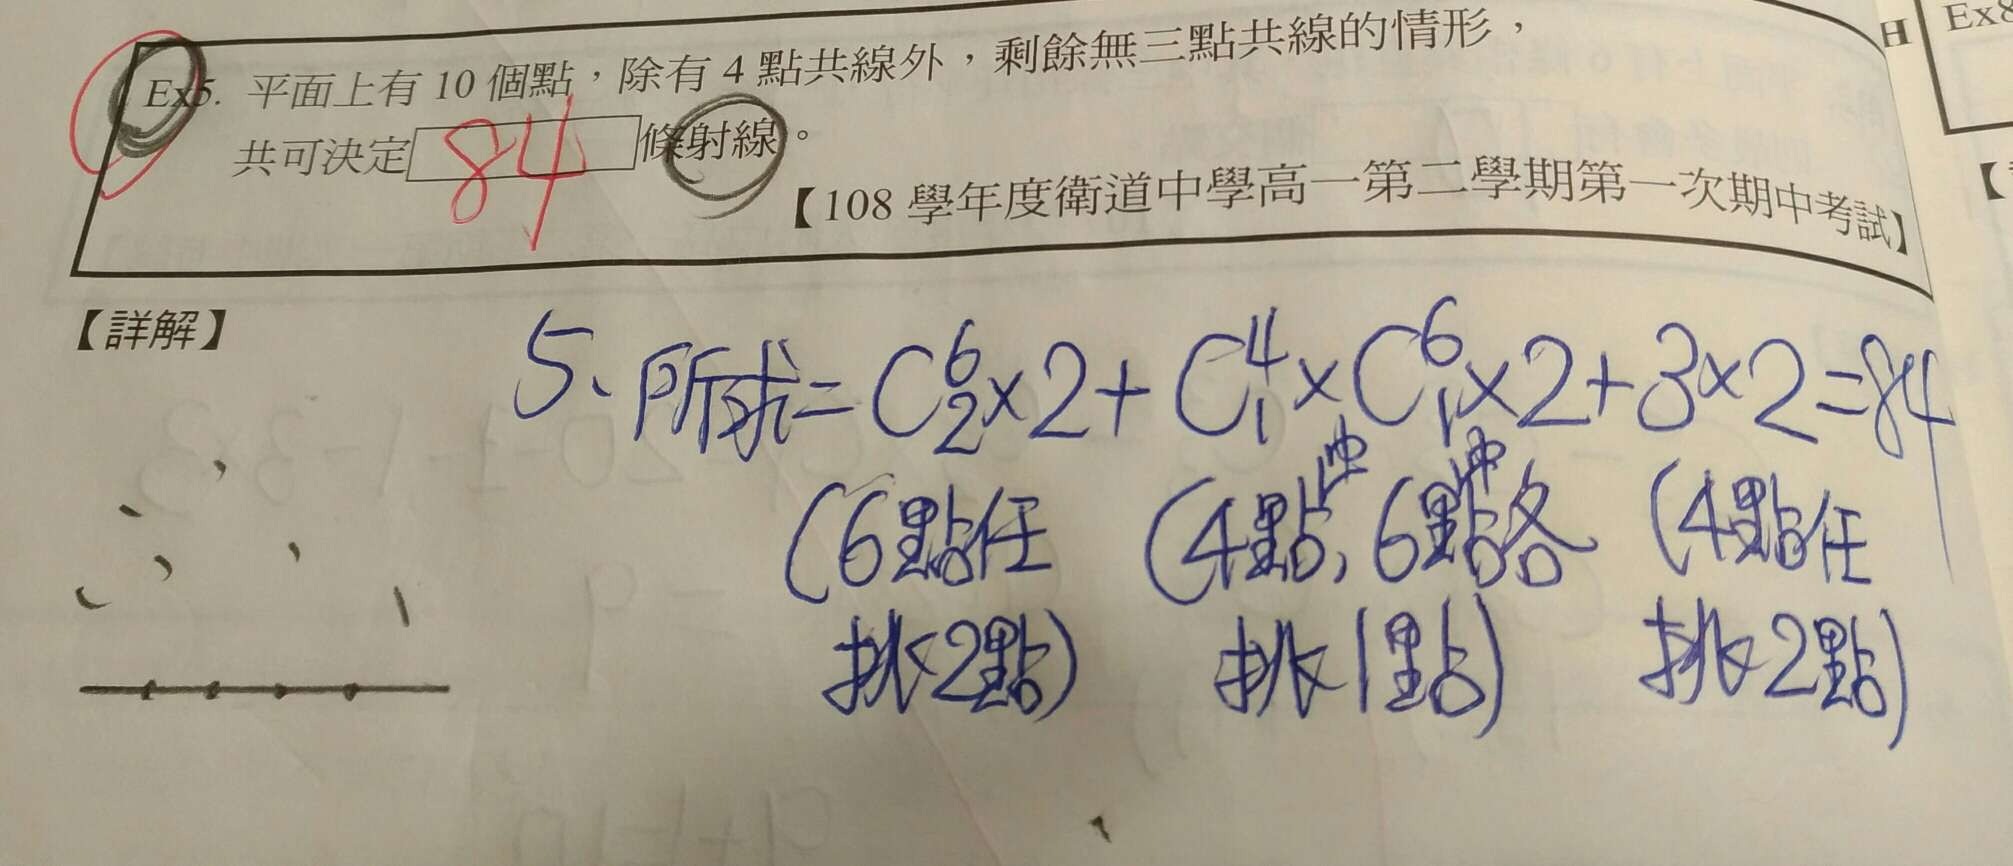 Ex5. 平面上有 10 個點，除有 4 點共線外，剩餘無三點共線的情形，
共可決定 84 條射線。
【108 學年度衛道中學高一第二學期第一次期中考試】
H
Ex8
【詳解】
5、所求=C⁶₂×2+C⁴₁×C⁶₁×2+3×2=84
(6點任挑2點)
(4點中,6點中各挑1點)
(4點任挑2點)